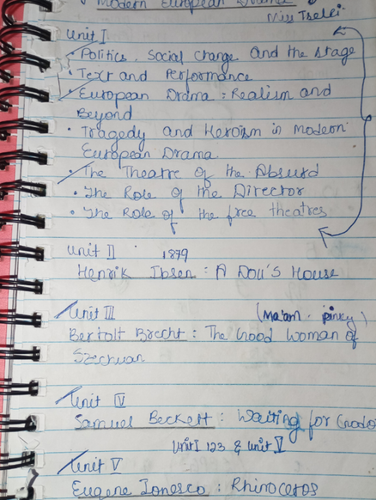 Modern European Drama
Miss
Unit I
• Politics, Social Change and the stage
• Text and Performance
• European Drama : Realism and
Beyond
• Tragedy and Heroism in modern
European Drama
• The Theatre of the Absurd
• The Role of the Director
• The Role of the free theatres
Unit II 1879
Henrik Ibsen : A Doll's House
Unit III (Ma'am. pinky)
Bertolt Brecht : The Good Woman of
Szechuan
Unit V
Samuel Beckett : Waiting for Godo
Unit 123 & Unit V
Unit V
Eugene Ionesco : Rhinoceros